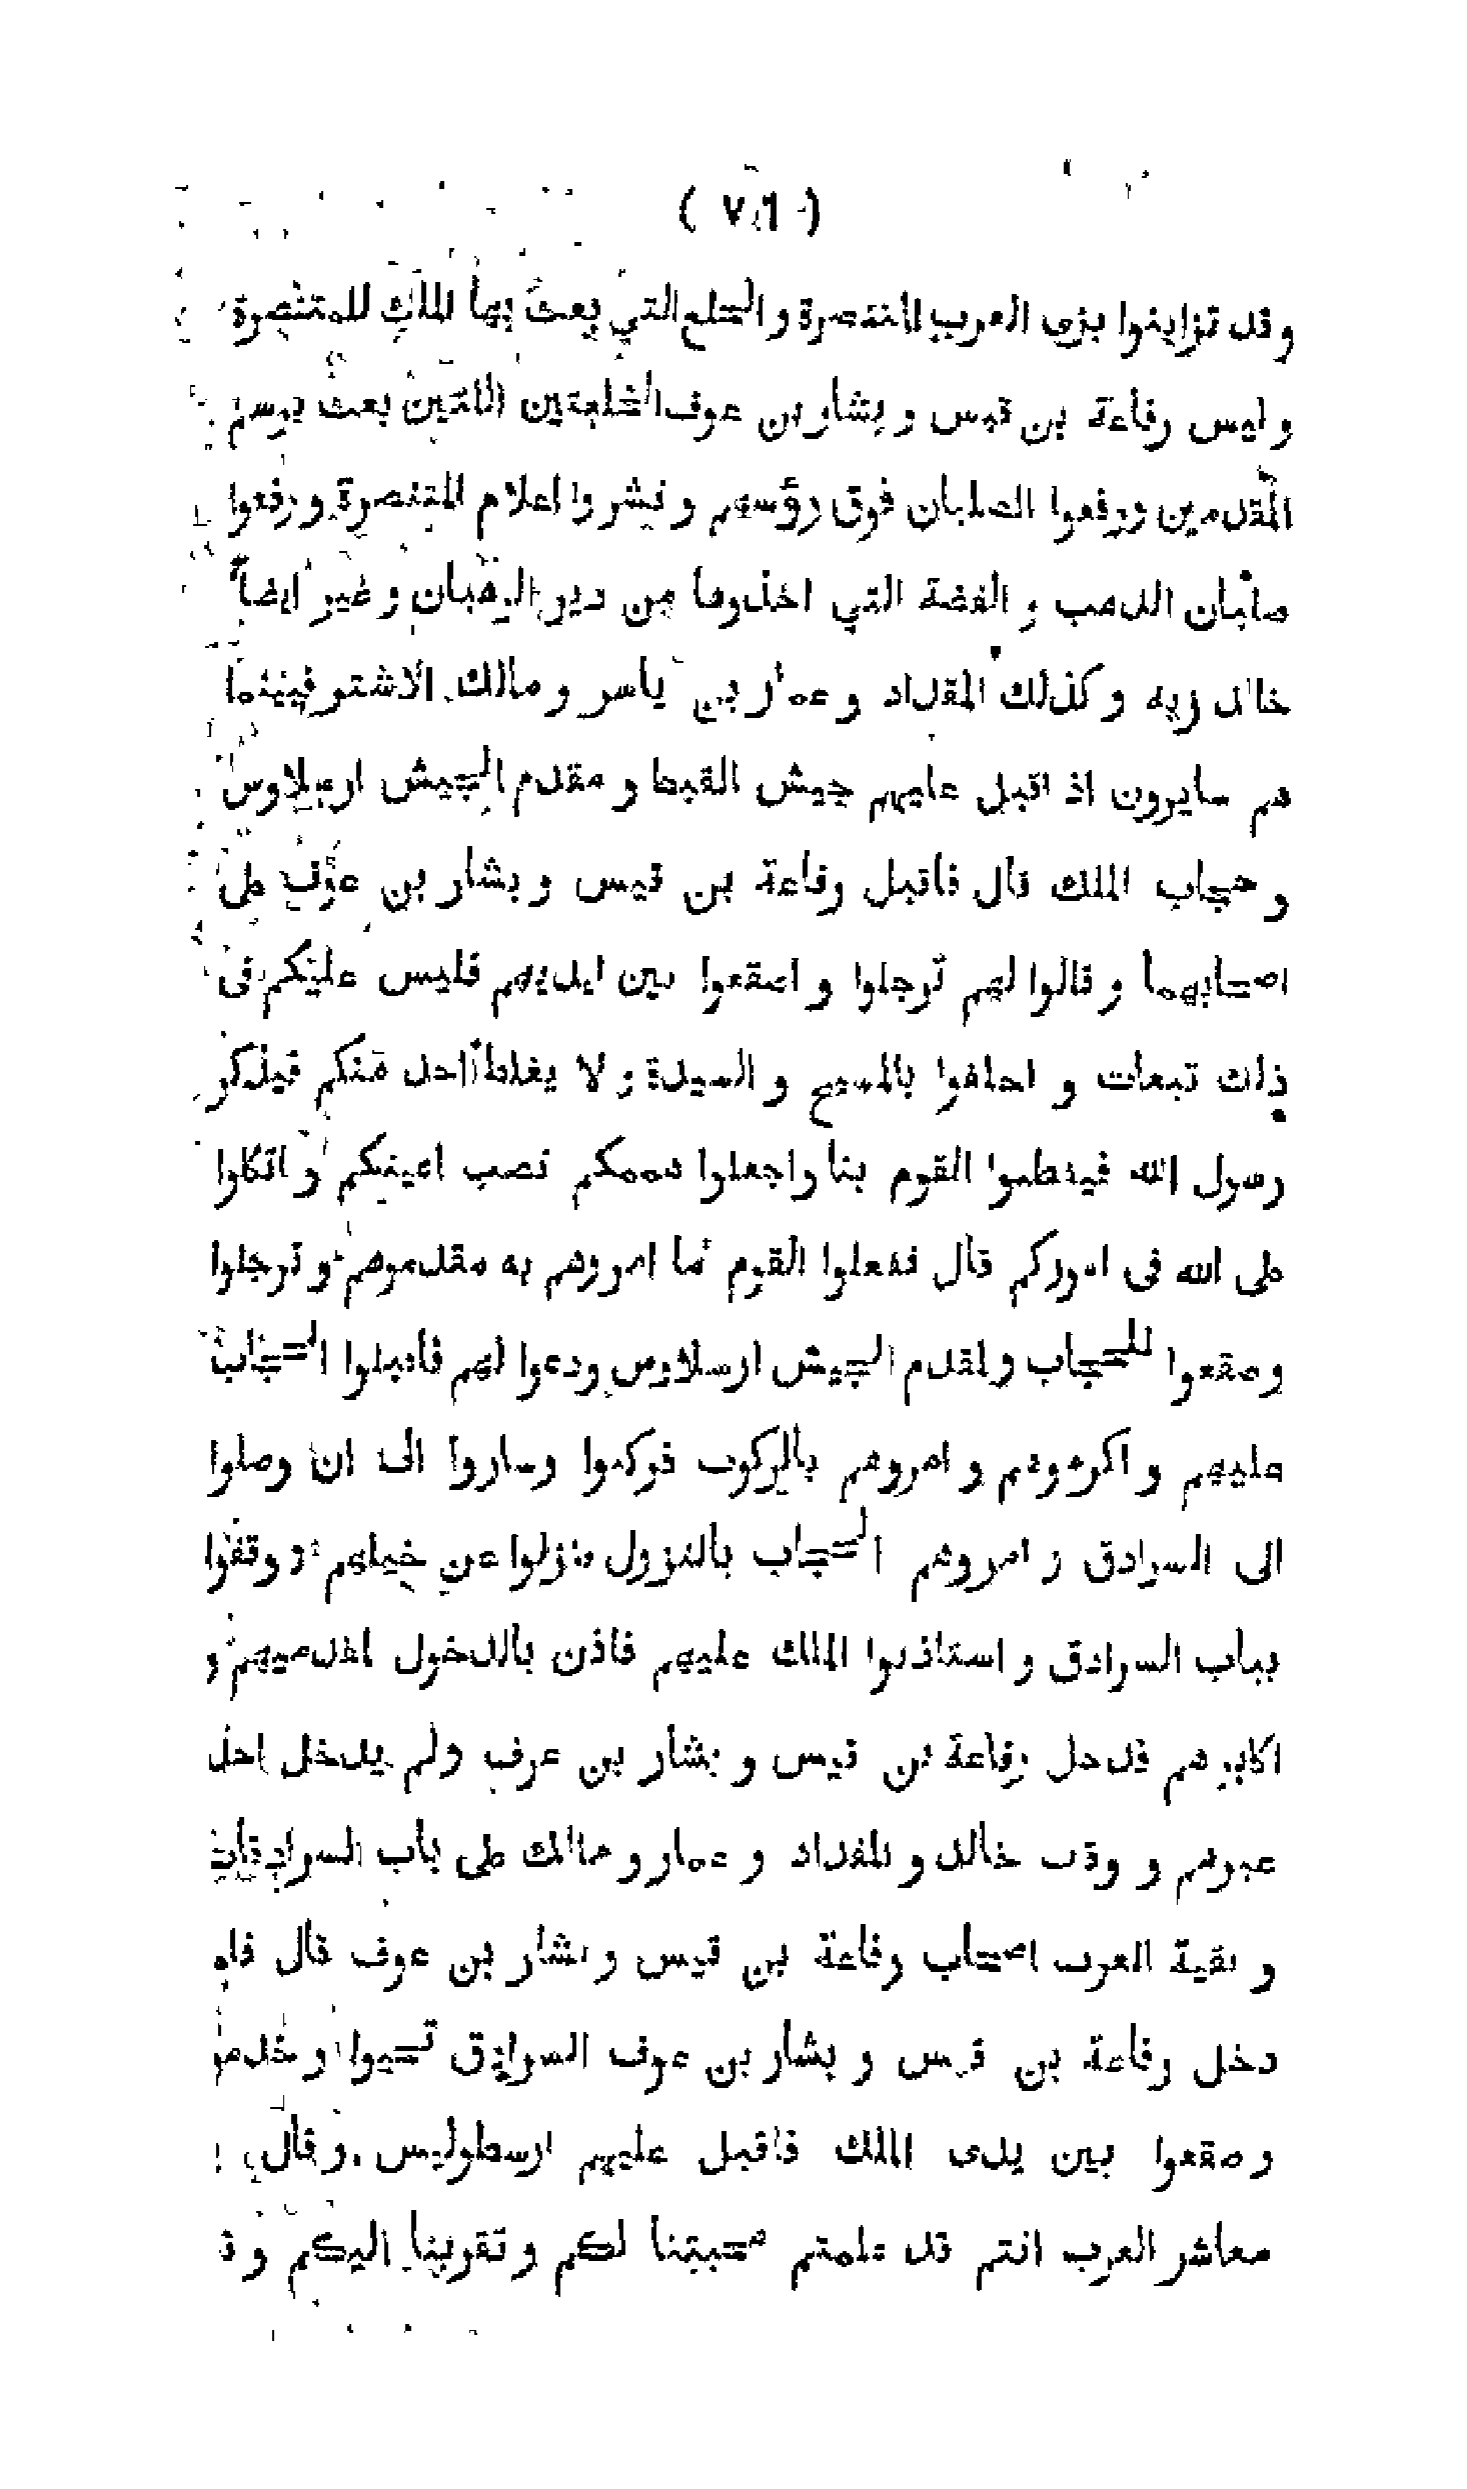 ( ٧٦ )
وقد تزاينوا بزى العرب المنتصرة والخلع التي بعث بها الملك للمتنصرة
وليس رفاعة بن قيس وبشار بن عوف الخلعتين اللتين بعث برسم
المقدمين ورفعوا الصلبان فوق رؤسهم ونشروا اعلام المتنصرة ورفعوا
صلبان الذهب و الفضة التي اخذوها من دير الرهبان وغير ايضاً
خالد زيه وكذلك المقداد وعمار بن ياسر ومالك الاشتر فبينما
هم سايرون اذ اقبل عليهم جيش القبط ومقدم الجيش ارسلاوس
وحجاب الملك قال فاقبل رفاعة بن قيس وبشار بن عوف على
اصحابهما وقالوا لهم ترجلوا واصقعوا بين ايديهم فليس عليكم فى
ذلك تبعات و احلفوا بالمسيح والسيدة ولا يغلط احد منكم فيذكر
رسول الله فينطموا القوم بنا واجعلوا هممكم نصب اعينكم و اتكلوا
على الله فى اموركم قال ففعلوا القوم ما امروهم به مقدموهم وترجلوا
وصقعوا للحجاب ولمقدم الجيش ارسلاوس ودعوا لهم فاقبلوا الحجاب
عليهم و اكرموهم وامروهم بالركوب فركبوا وساروا الى ان وصلوا
الى السرادق و امروهم الحجاب بالنزول فنزلوا عن خيلهم و وقفوا
بباب السرادق و استاذنوا الملك عليهم فاذن بالدخول لمقدميهم و
اكابرهم فدخل رفاعة بن قيس و بشار بن عوف ولم يدخل احد
غيرهم و وقف خالد و المقداد و عمار و مالك على باب السرادقات
و بقية العرب اصحاب رفاعة بن قيس وبشار بن عوف قال فلم
دخل رفاعة بن قيس و بشار بن عوف السرادق تحيوا وخدم
وصقعوا بين يدى الملك فاقبل عليهم ارسطوليس وقال
معاشر العرب انتم قد علمتم محبتنا لكم وتقربنا اليكم و